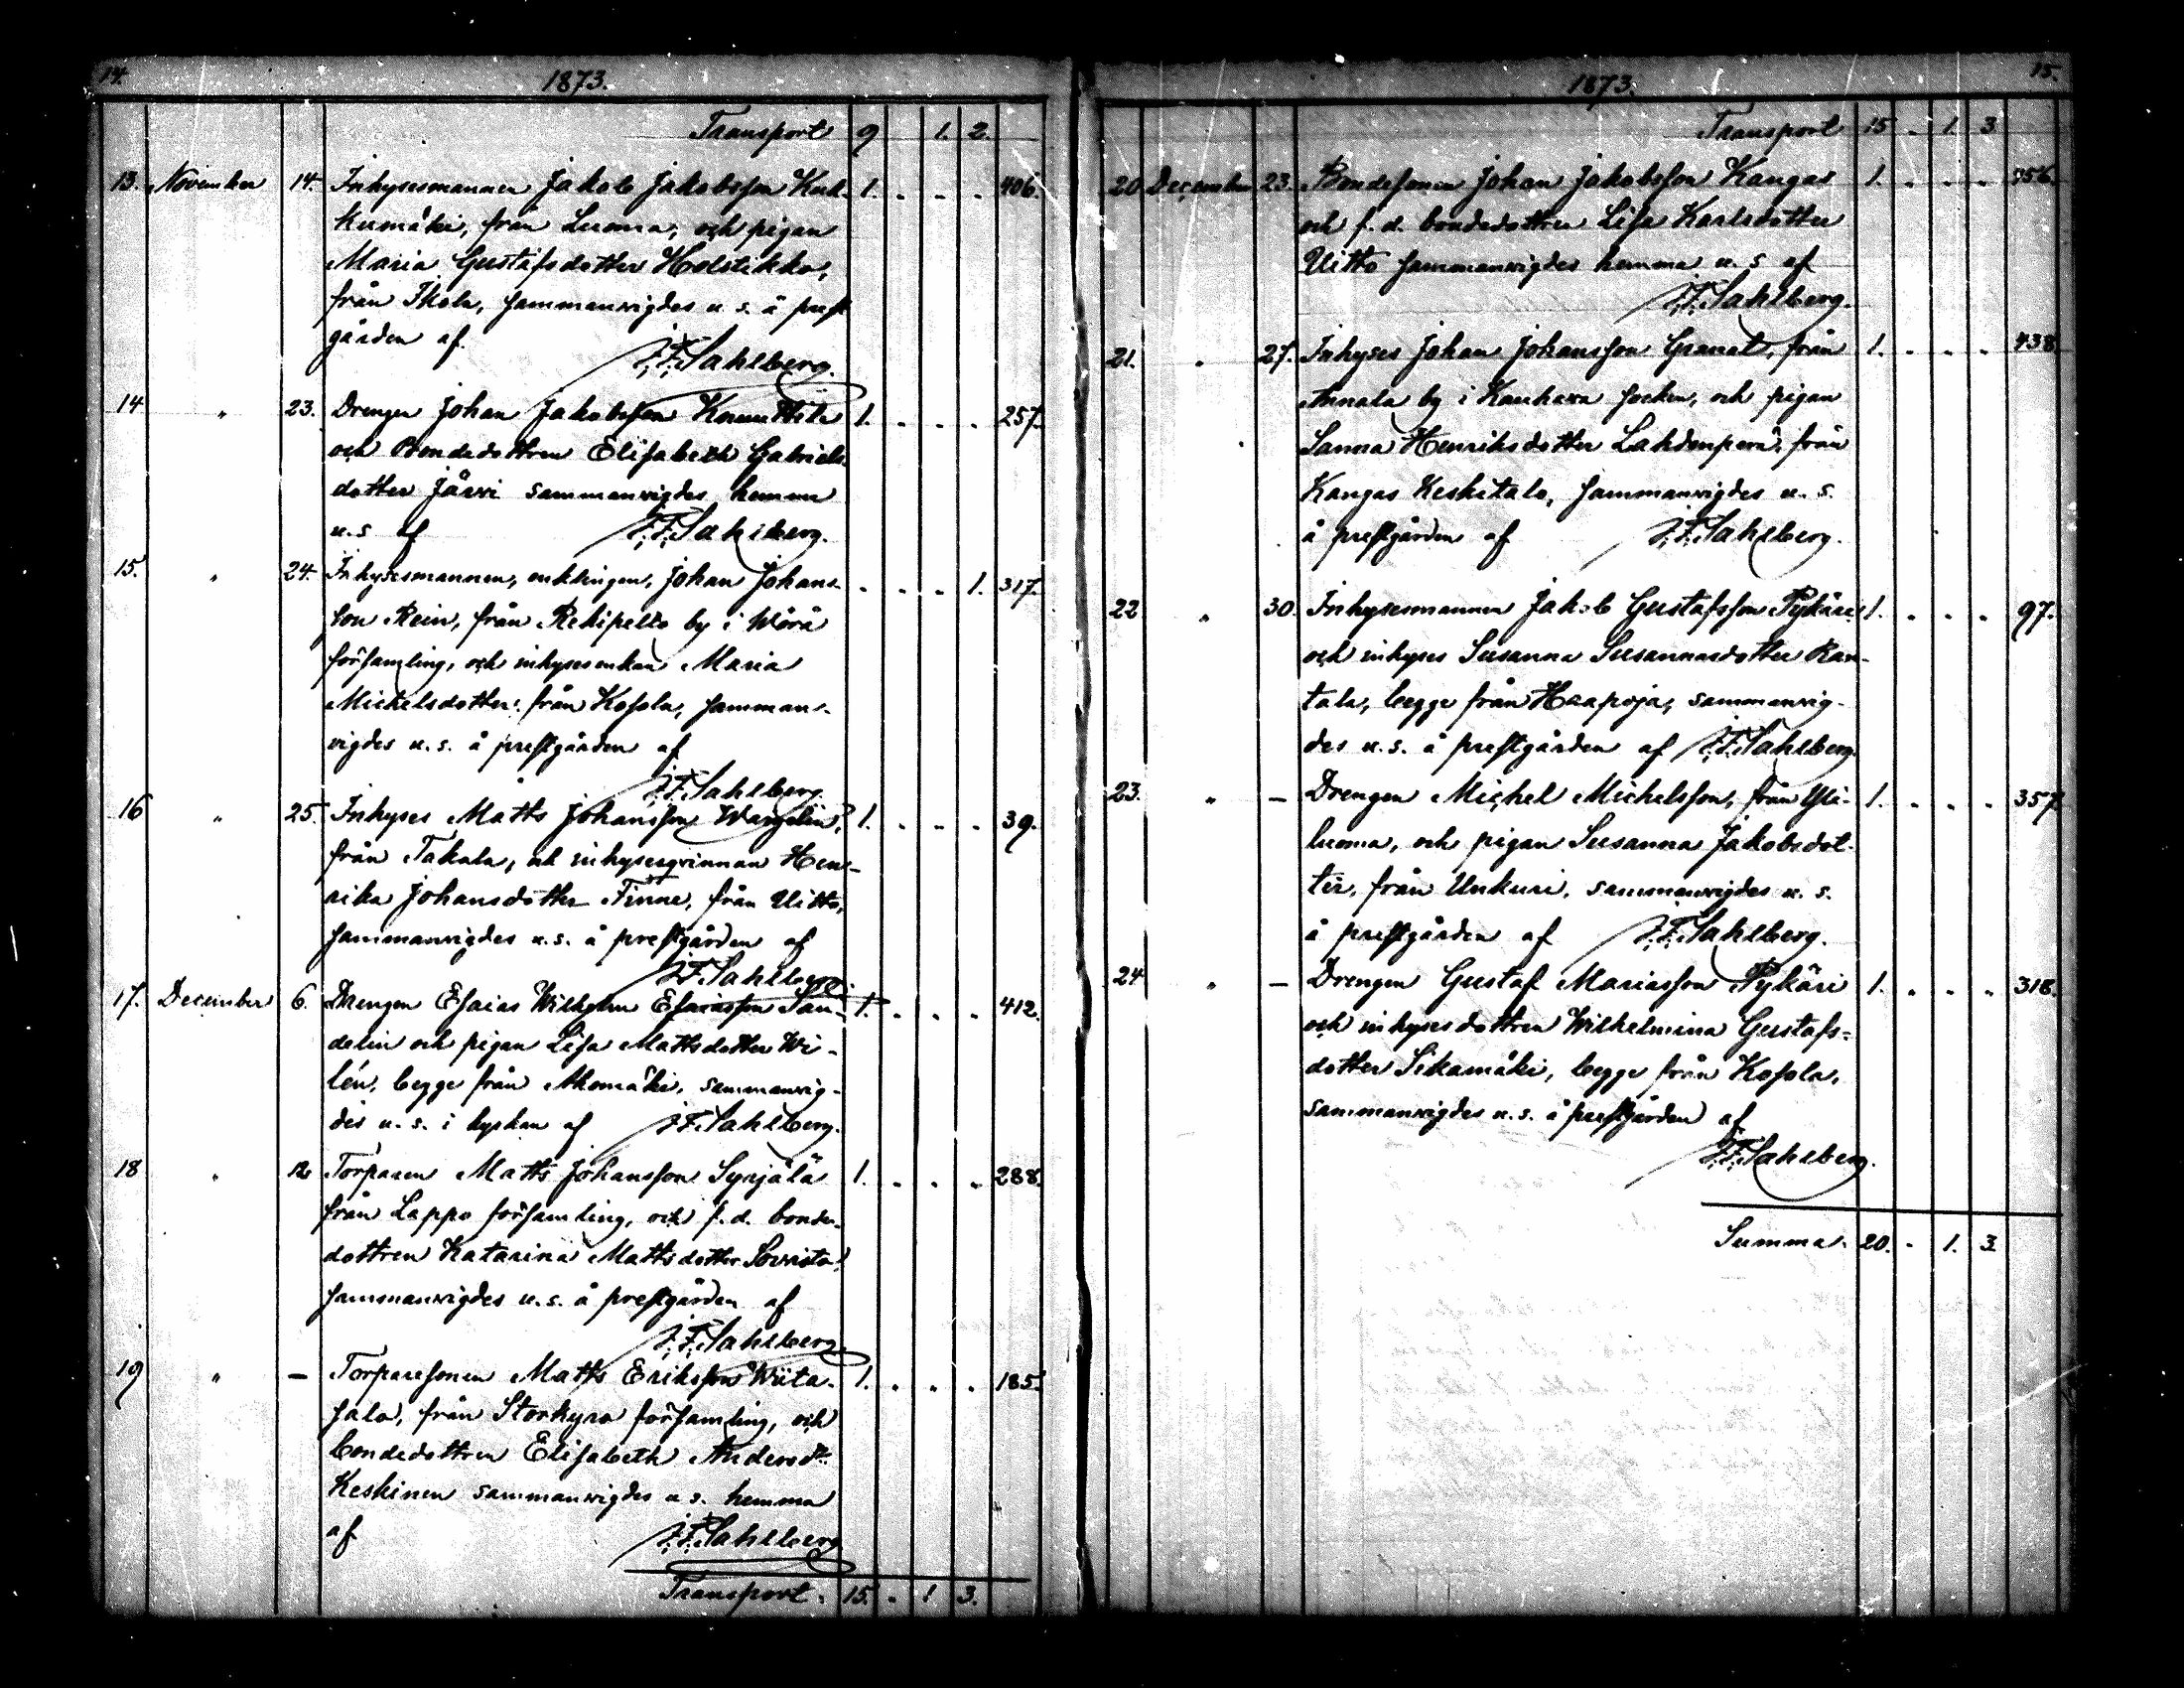 14.
1873.
Transport 9 1. 2.
13. November 14. Inhysesmannen Jakob Jakobsson Kuk- 1. . . . 406.
kumäki, från Luoma, och pigan
Maria Gustafsdotter Holstikko,
från Ikola, sammanvigdes u. s. å prest
gården af
J.F. Sahlberg.
14 " 23. Drengen Johan Jakobsson 1. . . . 257.
och Bondedottren Elisabeth Gabriels-
dotter Järvi sammanvigdes hemma
u. s af J.F. Sahlberg.
15. " 24. Inhysesmannen, enklingen, Johan Johans- . . . 1. 317.
son Rein, från Rekipelto by i Wörå
församling, och inhysesenkan Maria
Michelsdotter, från Kosola, samman-
vigdes u. s. å prestgården af
J.F. Sahlberg.
16 " 25. Inhyses Matts Johansson Wargelin, 1. . . . 39.
från Takala, och inhysesqvinnan Hen-
rika Johansdotter Finne, från Uitto,
sammanvigdes u. s. å prestgården af
J.F. Sahlberg.
17. December 6. Drengen Esaias Wilhelm Esaiasson San- 1. . . . 412.
delin och pigan Lisa Mattsdotter Wi-
lén, begge från Ahomäki, sammanvig-
des u. s. i kyrkan af J.F. Sahlberg.
18 " 12 Torparen Matts Johansson Syrjälä 1. . . . 288.
från Lappo församling, och f. d. bonde-
dottren Katarina Mattsdotter Sorvisto,
sammanvigdes u. s. å prestgården af
J.F. Sahlberg
19 " — Torparesonen Matts Eriksson Wiita- 1. . . . 185.
salo, från Storkyro församling, och
bondedottren Elisabeth Andersdr
Keskinen sammanvigdes u. s. hemma
af J.F. Sahlberg
Transport. 15. . 1 3.
15.
1873.
Transport 15 . 1. 3
20 December 23. Bondesonen Johan Jakobsson Kangas 1. . . . 756.
och f. d. bondedottren Lisa Karlsdotter
Uitto sammanvigdes hemma u. s af
J.F. Sahlberg.
21. " 27. Inhyses Johan Johansson Granat, från 1. . . . 438
Annala by i Kauhava socken, och pigan
Sanna Henriksdotter Lahdenperä, från
Kangas Keskitalo, sammanvigdes u. s.
å prestgården af J.F. Sahlberg.
22 " 30. Inhysesmannen Jakob Gustafsson Pykäri 1. . . . 97.
och inhyses Susanna Susannasdotter Ran-
tala, begge från Haapoja, sammanvig-
des u. s. å prestgården af J.F. Sahlberg.
23. " — Drengen Michel Michelsson, från Yli- 1. . . . 357
luoma, och pigan Susanna Jakobsdot-
ter, från Unkuri, sammanvigdes u. s.
å prestgården af J.F. Sahlberg.
24 " — Drengen Gustaf Mariasson Pykäri 1. . . . 318.
och inhysesdottren Wilhelmina Gustafs-
dotter Sikamäki, begge från Kosola,
sammanvigdes u. s. å prestgården af
J.F. Sahlberg.
Summa. 20. . 1. 3